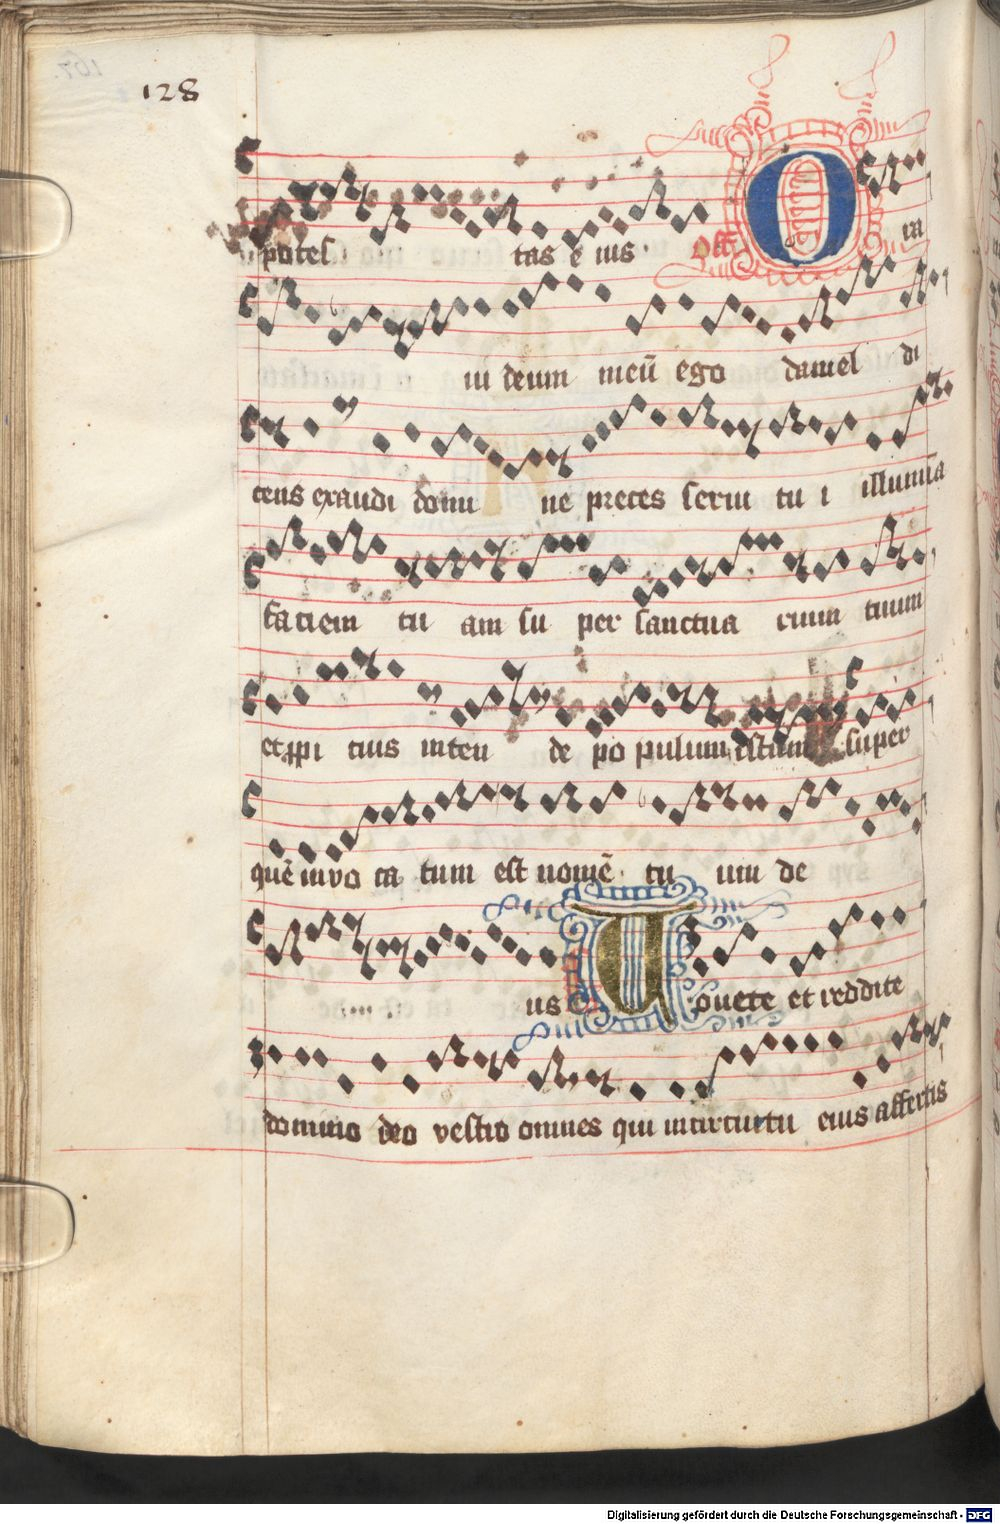 128
potes tas e ius Off O ra
ui deum meū ego daniel di
cens exaudi domi ne preces serui tu i illumīa
faciem tu am su per sanctua rium tuum
et ꝓpi cius inten de po pulum istum super
quē invo ca tum est nomē tu um de
us Uouete et reddite
domino deo vestro omnes qui in circuitu eius affertis
Digitalisierung gefördert durch die Deutsche Forschungsgemeinschaft - DFG